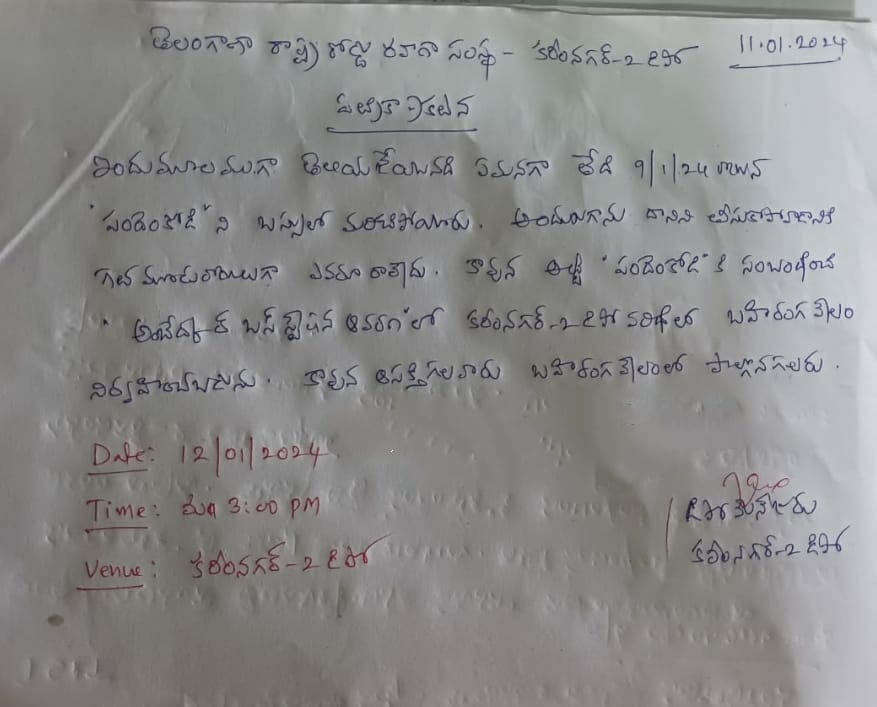 తెలంగాణా రాష్ట్ర రోడ్డు రవాణా సంస్థ - కరీంనగర్-2 డిపో 11.01.2024
పత్రికా ప్రకటన
ఇందుమూలముగా తెలియజేయునది ఏమనగా తేది 9/1/24 రోజున
"పందెంకోడి" ని బస్సులో మరిచిపోయారు. అందులకుగాను దానిని తీసుకుపోవడానికి
గత మూడురోజులుగా ఎవరూ రాలేదు. కావున అట్టి "పందెంకోడి" కి సంబంధించి
బస్ స్టేషన్ ఆవరణ"లో కరీంనగర్-2 డిపో పరిధిలో బహిరంగ వేలం
నిర్వహించబడును. కావున ఆసక్తిగలవారు బహిరంగ వేలంలో పాల్గొనగలరు.
Date: 12/01/2024
Time: మధ్యా 3:00 PM
Venue: కరీంనగర్-2 డిపో
డిపో మేనేజరు
కరీంనగర్-2 డిపో